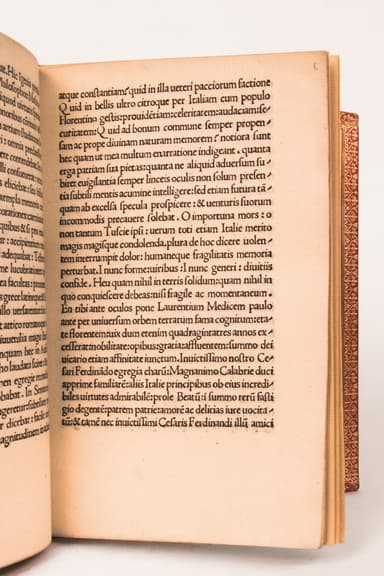 atque constantiam: quid in illa ueteri pacciorum factione
Quid in bellis ultro citroque per Italiam cum populo
Florentino gestis: prouidētiam: celeritatem: audaciam: se
curitatem: Quid ad bonum commune semper propen
sam ac prope diuinam naturam memorē: notiora sunt
hec quam ut mea multum enarratione indigeant. quanta
erga patriam sua pietas: quanta ne aliquid aduersum su
biret euigilantia semper linceis oculis non solum presen
tia subtili mentis acumine intelligere: sed etiam futura tā
quam ab excelsa specula prospicere: & uenturis suorum
incomodis precauere solebat. O importuna mors: o
non tantum Tuscie ipsi: uerum toti etiam Italie merito
magis magisque condolenda. plura de hoc dicere uolen
tem interrumpit dolor: humaneque fragilitatis memoria
perturbat. I nunc forme: uiribus: I nunc generi: diuitiis
confide. Heu quam nihil in terris solidum: quam nihil in
quo conquiescere debeas: nisi fragile ac momentaneum.
En tibi ante oculos pone Laurentium Medicem paulo
ante per uniuersum orbem terrarum fama cognitum: eta
te florentem: uix dum etenim quadragintatres annos ex
cesserat: nobilitate: opibus: gratia: affluentem: summo dei
uicario etiam affinitate iunctum. Inuictissimo nostro Ce
sari Ferdinādo egregia charū: Magnanimo Calabrie duci
apprime familiarē: aliis Italie principibus ob eius incredi
biles uirtutes admirabilē: prole Beatū: i summo rerū fasti
gio degentē: patrem patrie: amorē ac delitias iure uocita
tū: & tamē nec inuictissimi Cesaris Ferdinandi illū amici